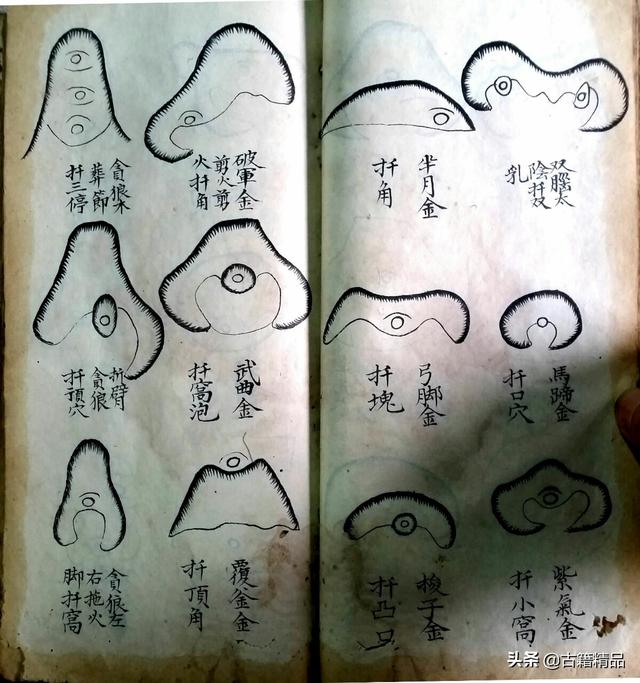 双腦太
陰扦双
乳
半月金
扦角
馬蹄金
扦口穴
弓脚金
扦塊
紫氣金
扦小窩
梭子金
扦凸
破軍金
剪火剪
火扦角
貪狼木
葬節
扦三停
武曲金
扦窩泡
折臂
貪狼
扦頂穴
覆釜金
扦頂角
貪狼左
右拖火
脚扦窩
头条 @古籍精品